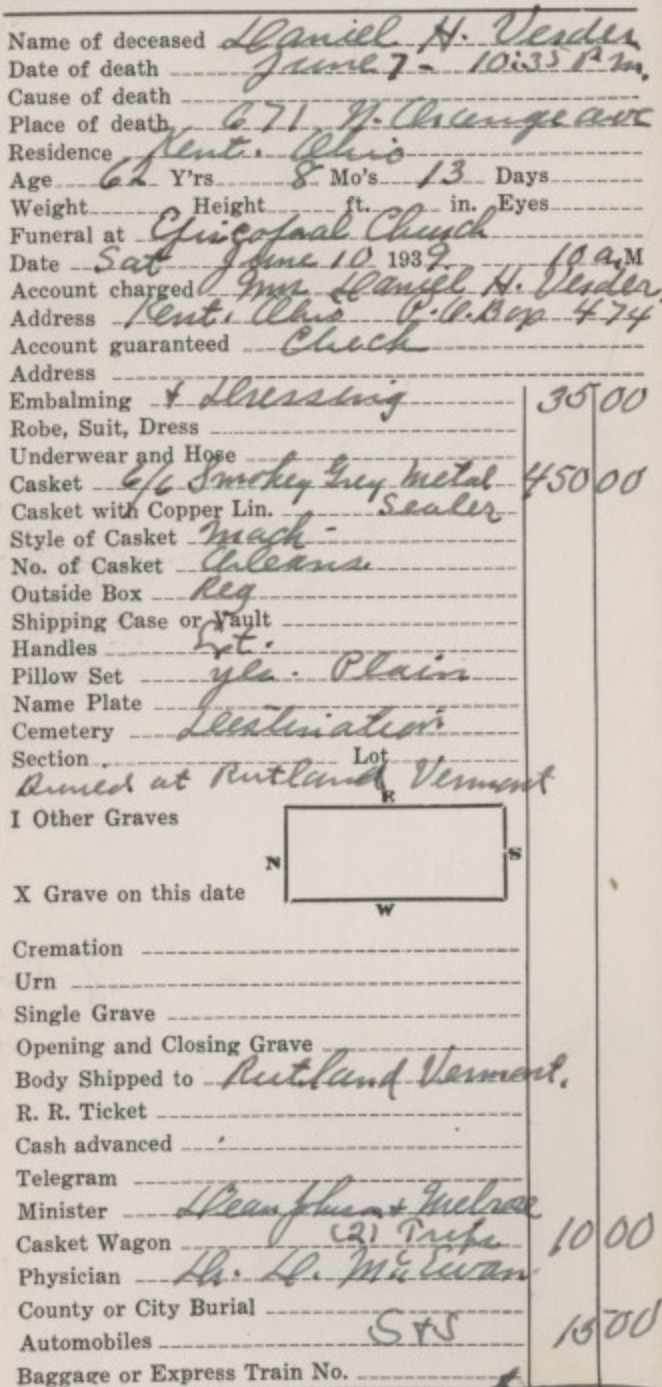 Name of deceased Daniel H. Verder
Date of death June 7 - 10:35 P.m.
Cause of death
Place of death 671 N. Orange ave
Residence Kent. Ohio
Age 62 Y'rs 8 Mo's 13 Days
Weight Height ft. in. Eyes
Funeral at Episcopal Church
Date Sat June 10 1939. 10 a.M
Account charged Mrs Daniel H. Verder.
Address Kent. Ohio P.O. Box 474
Account guaranteed Check
Address
Embalming & Dressing 35 00
Robe, Suit, Dress
Underwear and Hose
Casket 6/6 Smokey Grey Metal 450 00
Casket with Copper Lin. Sealer
Style of Casket Mach -
No. of Casket Orleans
Outside Box Reg
Shipping Case or Vault
Handles Ext.
Pillow Set yes. Plain
Name Plate
Cemetery Destination
Section Lot
Buried at Rutland Vermont
E
I Other Graves
N S
X Grave on this date
W
Cremation
Urn
Single Grave
Opening and Closing Grave
Body Shipped to Rutland Vermont.
R. R. Ticket
Cash advanced
Telegram
Minister Dean Johnson & Melrose
Casket Wagon (2) Trips 10 00
Physician Dr. D. McEwan
County or City Burial
Automobiles S & S 15 00
Baggage or Express Train No.